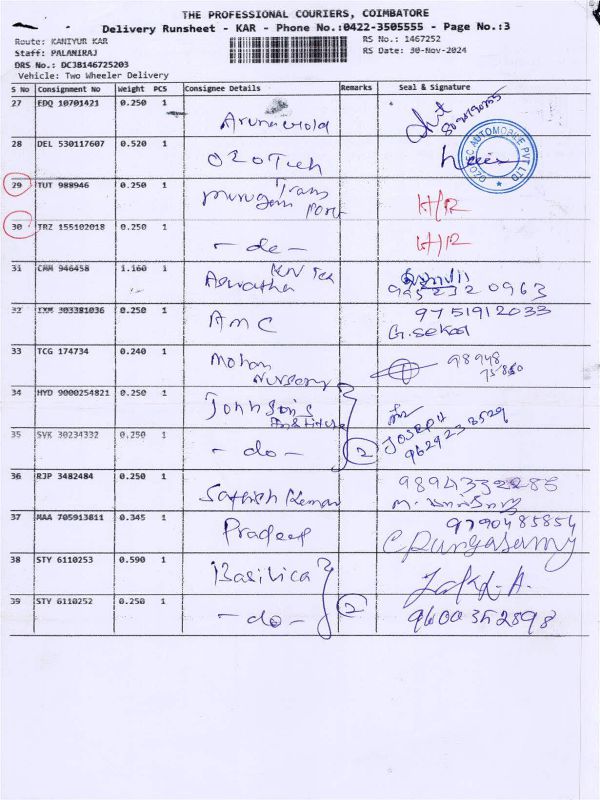 THE PROFESSIONAL COURIERS, COIMBATORE
Delivery Runsheet - KAR - Phone No.:0422-3505555 - Page No.:3
Route: KANIYUR KAR
RS No.: 1467252
Staff: PALANIRAJ
RS Date: 30-Nov-2024
DRS No.: DC3B146725203
Vehicle: Two Wheeler Delivery
S No Consignment No Weight PCS Consignee Details Remarks Seal & Signature
27 EDQ 10701421 0.250 1
28 DEL 530117607 0.520 1 OZOTech
OZOTEC AUTOMOBILE PVT LTD
29 TUT 988946 0.250 1 murugan Trans Port
30 TRZ 155102018 0.250 1 - do -
31 CMM 946458 1.160 1 Aswatha
995232 0963
32 IXM 303381036 0.250 1 AMC 9751912033
G.sekar
33 TCG 174734 0.240 1 Mohan Nursery 98948
34 HYD 9000254821 0.250 1 Johnsons
JOSEPH
9629238529
35 SVK 30234332 0.250 1 - do - 2
36 RJP 3482484 0.250 1 Sathish Kumar
37 MAA 705913811 0.345 1 Pradeep 9790485854
C Rungasamy
38 STY 6110253 0.590 1 Basilica
39 STY 6110252 0.250 1 - do - 2 9600352898